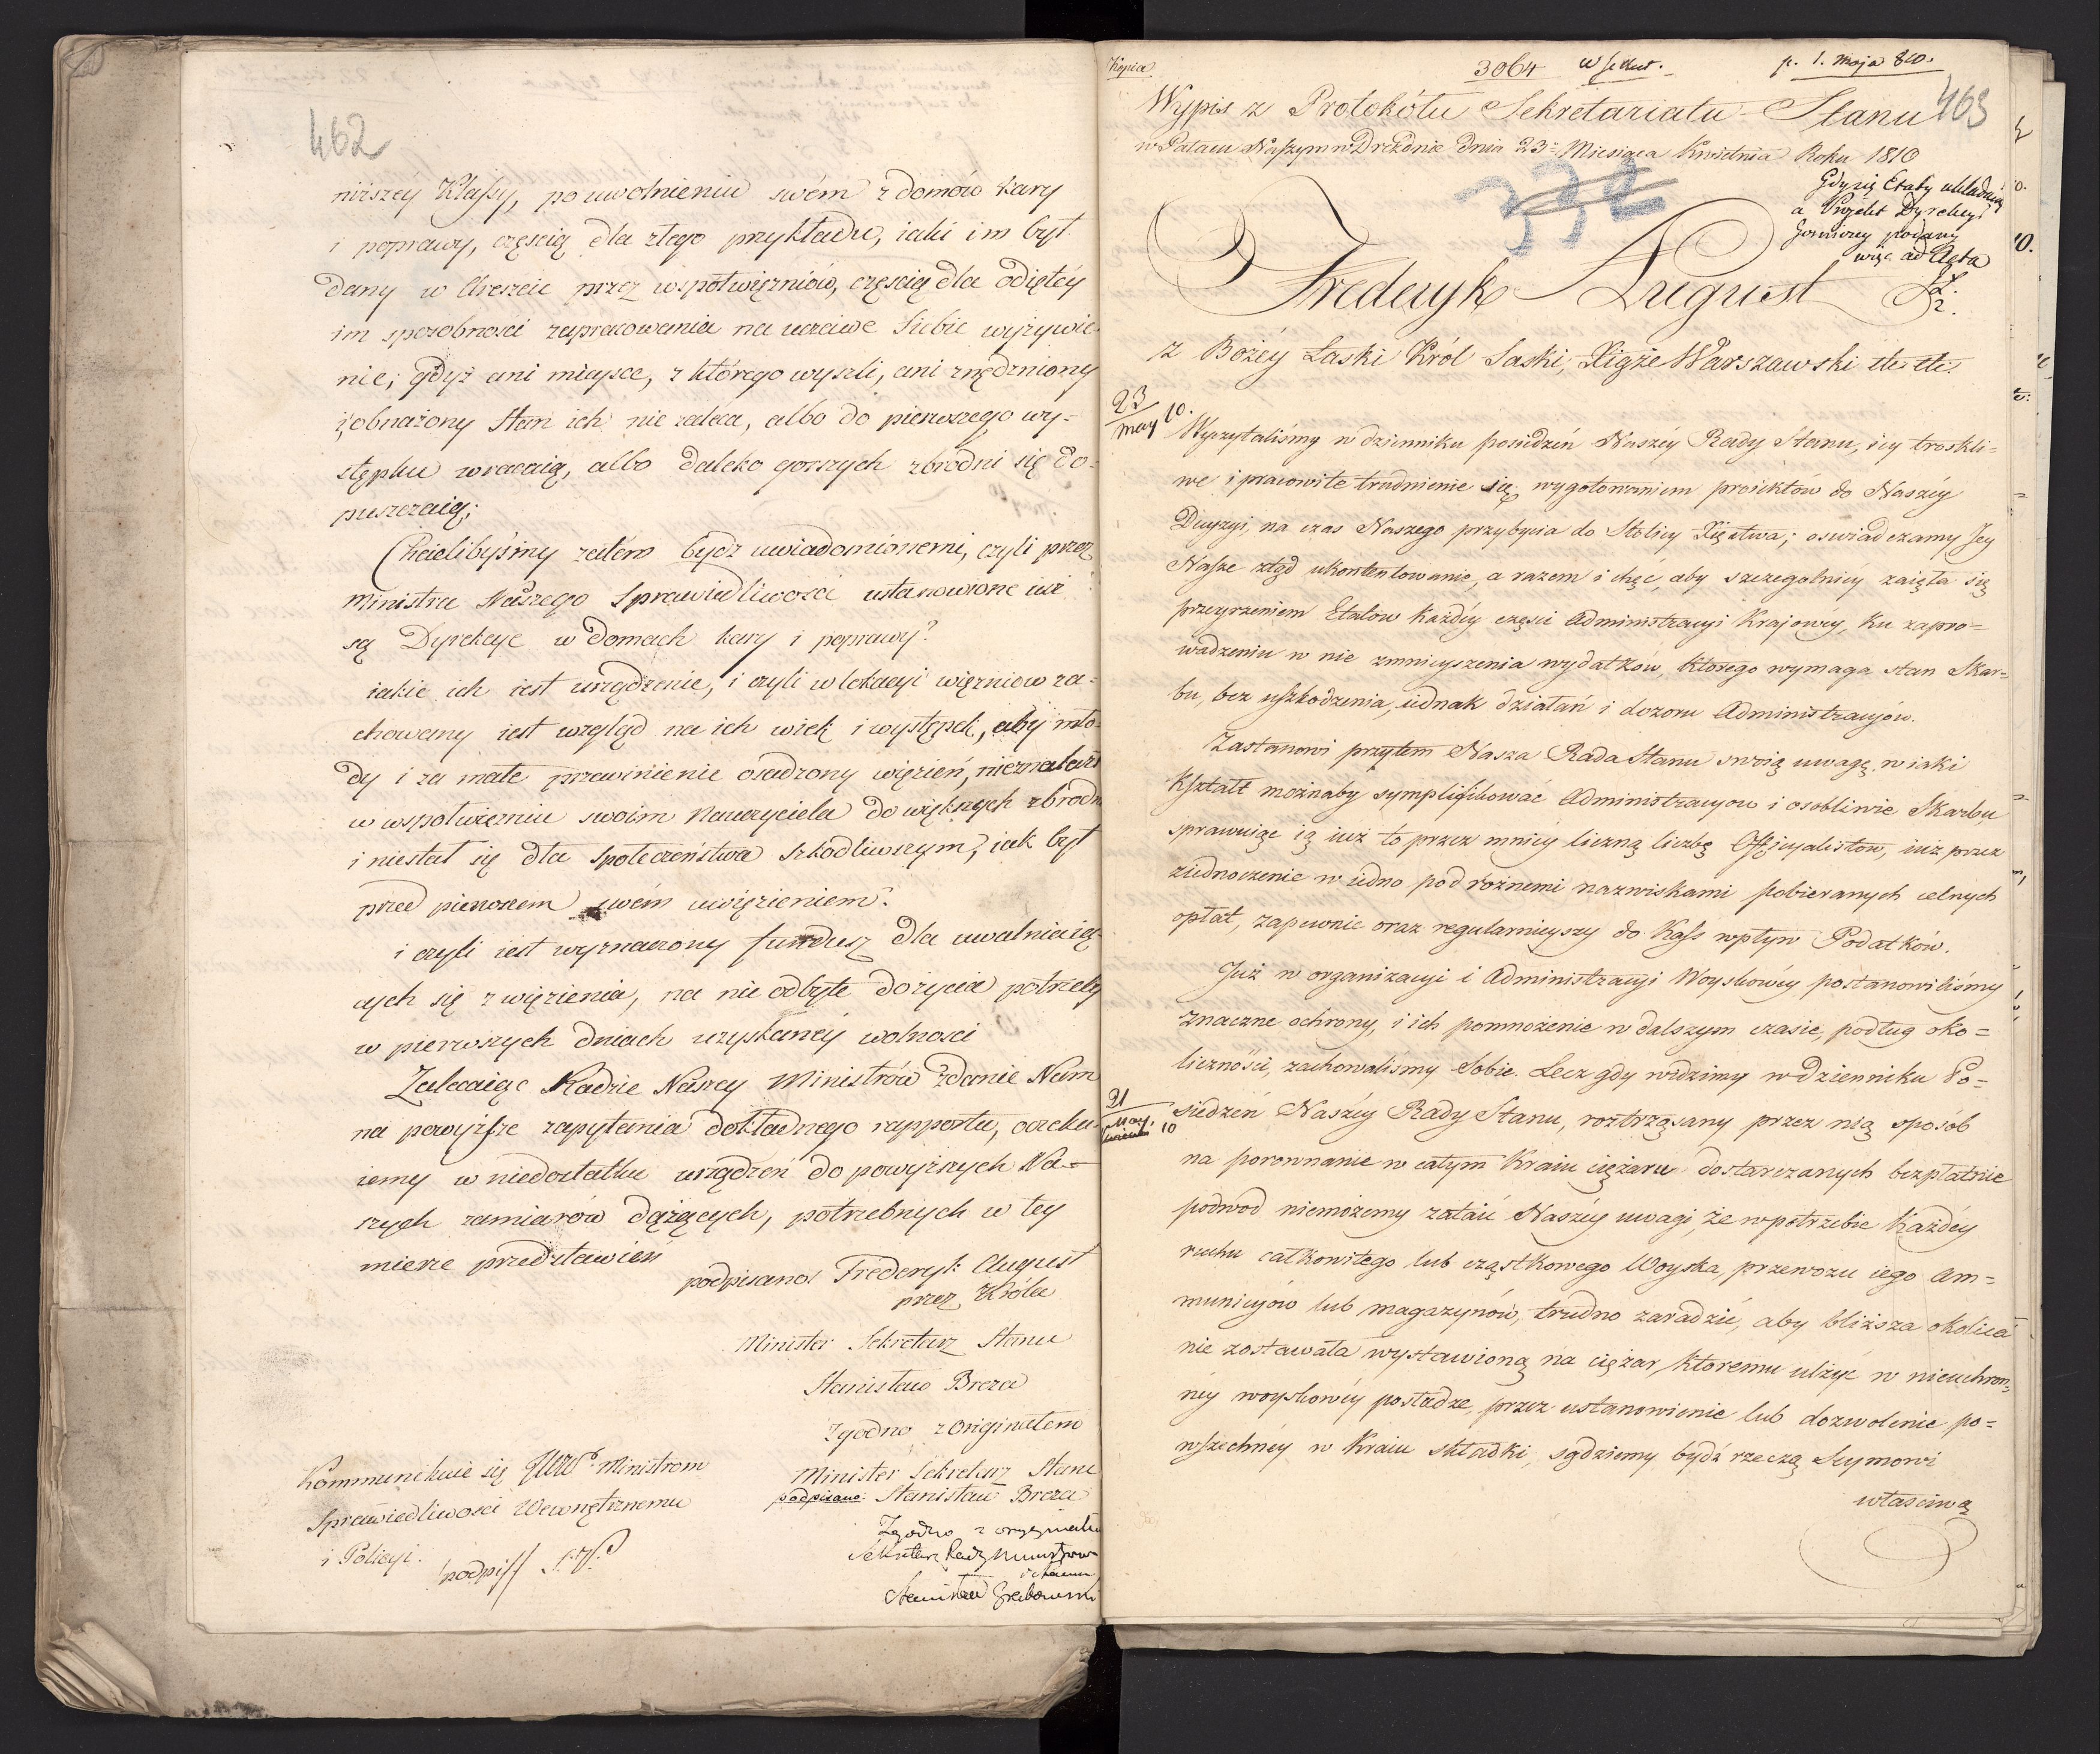 462
niższéy Klassy, po uwolnieniu swém z domów kary
i poprawy, częścią dla złego przykładu, iaki im był
dany w Areszcie przez wspołwięzniów, częscią dla odiętéy
im sposobnosci zapracowania na uczciwe Siebie wyżywie-
nie; gdyż ani mieysce, z którego wyszli, ani znędzniony
i obnażony Stan ich nie zaleca, albo do pierwszego wy-
stępku wracaią, albo daleko gorszych zbrodni się do-
puszczaią;
Chcielibyśmy zatém bydź uwiadomionemi, czyli przez
Ministra Naszego Sprawiedliwosci ustanowione iuż
są Dyrekcye w domach kary i poprawy?
iakie ich iest urządzenie, i czyli w lokacyi więzniow za-
chowany iest wzgląd na ich wiek i występek, aby mło-
dy i za małe przewinienie osadzony więzień, nieznalazł
w wspołwięzniu swoim Nauczyciela do większych zbrodni
i niestał się dla społeczeństwa szkodliwszym, iak był
przed pierwszem swém uwięzieniem?
i czyli iest wyznaczony fundusz dla uwalniaią-
cych się z więzienia, na nie odbyte do życia potrzeby
w pierwszych dniach uzyskanéy wolnosci
Zalecaiąc Radzie Naszey Ministrów zdanie Nam
na powyższe zapytania dokładnego rapportu, oczeku-
iemy w niedostatku urządzeń do powyższych Na-
szych zamiarów dążących, potrzebnych w tey
mierze przedstawień
podpisano Frederyk August
przez Króla
Minister Sekretarz Stanu
Stanisław Breza
Zgodno z Originałem
Minister Sekretarz Stanu
podpisano: Stanisław Breza
Kommunikuie się JWW. Ministrom
Sprawiedliwosci Wewnętrznemu
i Policyi.
podpiss
Zgodno z oryginałem
Sekretarz Rady Ministrów
Stanisław Grabowski
Kopia
3064
p. 1. Maja 810.
463
Wypis z Protokółu Sekretariatu Stanu
w Pałacu Naszym w Dreźnie dnia 23 Miesiąca Kwietnia Roku 1810
332
Gdy się Etaty układaią
a Projekt Dyrekcyi
Gorniczey podany
więc ad Acta
Frederyk August
z Bożéy Łaski Król Saski, Xiąże Warszawski etc etc.
23
May 10.
Wyczytaliśmy w dzienniku posiedzeń Naszéy Rady Stanu, iey troskli-
we i pracowite trudnienie się wygotowaniem proiektów do Naszéy
Decyzyi, na czas Naszego przybycia do Stolicy Xięstwa; oswiadczamy Jey
Nasze ztąd ukontentowanie, a razem i chęć, aby szczegolniéy zaięła się
przeyrzeniem Etatow każdéy części Administracyi Krajowéy, ku zapro-
wadzeniu w nie zmnieyszenia wydatków, którego wymaga stan Skar-
bu, bez uszkodzenia, iednak działań i dozoru Administracyów.
Zastanowi przytem Nasza Rada Stanu swoią uwagę w iaki
Kształt możnaby symplifikować Administracyow i osobliwie Skarbu
sprawuiąc ią iuż to przez mniéy liczną liczbę Officyalistow, iuż przez
ziednoczenie w iedno pod rożnemi nazwiskami pobieranych celnych
opłat, zapewnic oraz regularnieyszy do Kass wpływ Podatków.
Już w organizacyi i Administracyi Woyskowéy postanowiliśmy
znaczne ochrony, i ich pomnożenie w dalszym czasie, podług oko-
liczności, zachowaliśmy Sobie. Lecz gdy widzimy w dzienniku Po-
21
May. 10
siedzeń Naszéy Rady Stanu, roztrząsany przez nią sposób
na porownanie w całym Kraiu ciężaru dostarczanych bezpłatnie
podwod niemożemy zataić Naszéy uwagi, że w potrzebie każdéy
ruchu całkowitego lub cząstkowego Woyska, przewozu iego am-
municyów lub magazynów, trudno zaradzić, aby bliższa okolica
nie zostawała wystawioną na ciężar, ktoremu ulżyc w nieuchron-
néy woyskowéy postadze, przez ustanowienie lub dozwolenie po-
wszechnéy w Kraiu składki, sądziemy bydź rzeczą Seymowi
właściwą